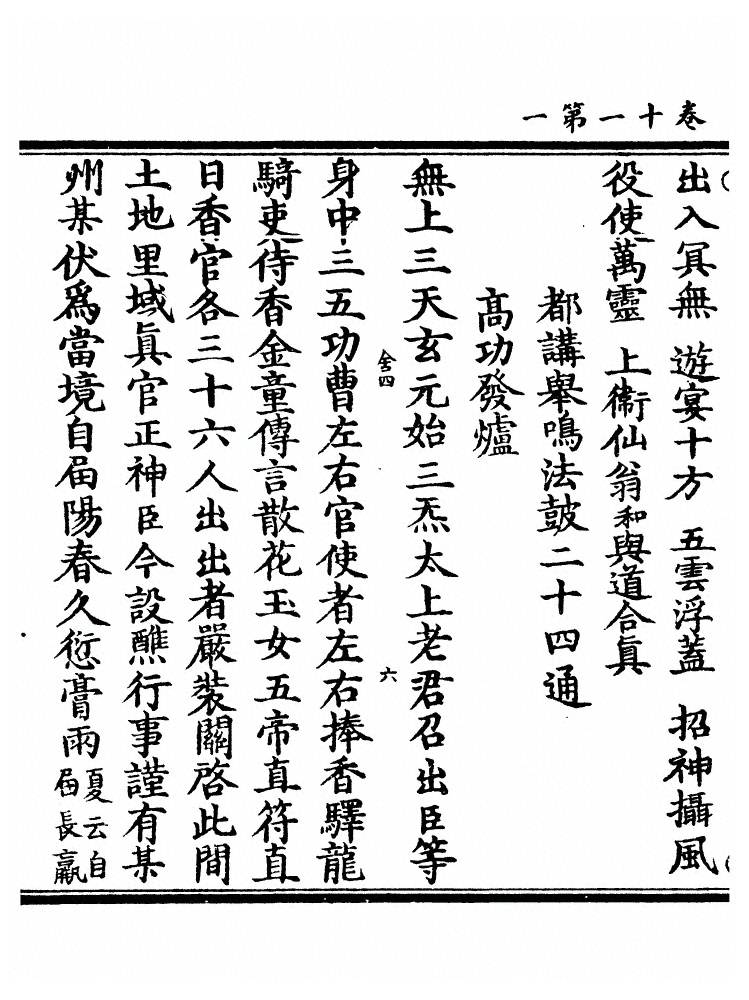 卷十一第一
出入冥無　遊宴十方　五雲浮蓋　招神攝風
役使萬靈　上衞仙翁和與道合眞
都講舉鳴法鼓二十四通
高功發爐
無上三天玄元始三炁太上老君召出臣等
舍四　六
身中三五功曹左右官使者左右捧香驛龍
騎吏侍香金童傳言散花玉女五帝直符直
日香官各三十六人出出者嚴裝關啓此間
土地里域眞官正神臣今設醮行事謹有某
州某伏爲當境自届陽春久愆膏雨夏云自届長羸